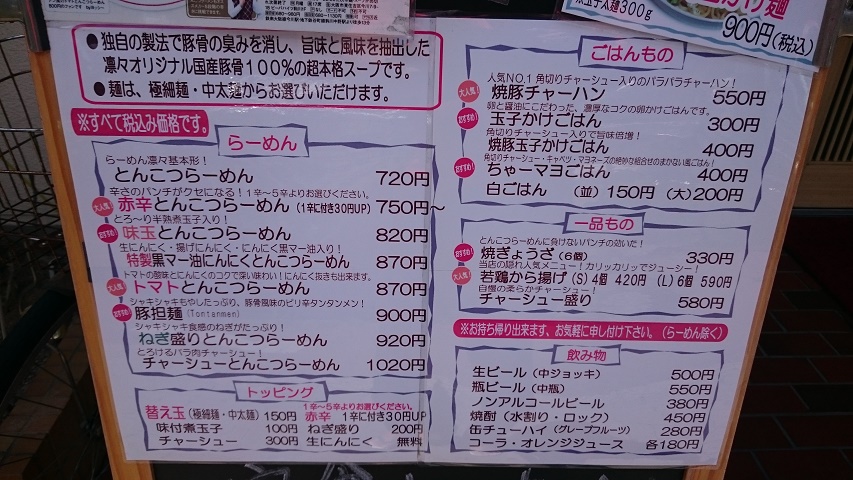 味玉子太麺300g
900円(税込)
●独自の製法で豚骨の臭みを消し、旨味と風味を抽出した
凛々オリジナル国産豚骨100%の超本格スープです。
●麺は、極細麺・中太麺からお選びいただけます。
※すべて税込み価格です。
らーめん
らーめん凛々基本形!
とんこつらーめん 720円
辛さのパンチがクセになる!1辛~5辛よりお選びください。
大人気! 赤辛とんこつらーめん(1辛に付き30円UP) 750円~
とろ~り半熟煮玉子入り!
おすすめ! 味玉とんこつらーめん 820円
生にんにく・揚げにんにく・にんにく黒マー油入り!
特製黒マー油にんにくとんこつらーめん 870円
トマトの酸味とにんにくのコクで深い味わい!にんにく抜きも出来ます。
大人気! トマトとんこつらーめん 870円
シャキシャキもやしたっぷり、豚骨風味のピリ辛タンタンメン!
おすすめ! 豚担麺(Tontanmen) 900円
シャキシャキ食感のねぎがたっぷり!
ねぎ盛りとんこつらーめん 920円
とろけるバラ肉チャーシュー!
チャーシューとんこつらーめん 1020円
トッピング
替え玉(極細麺・中太麺) 150円
味付煮玉子 100円
チャーシュー 300円
1辛~5辛よりお選びください。
赤辛 1辛に付き30円UP
ねぎ盛り 200円
生にんにく 無料
ごはんもの
人気NO.1 角切りチャーシュー入りのパラパラチャーハン!
大人気! 焼豚チャーハン 550円
卵と醤油にこだわった、濃厚なコクの卵かけごはんです。
おすすめ! 玉子かけごはん 300円
角切りチャーシュー入りで旨味倍増!
焼豚玉子かけごはん 400円
角切りチャーシュー・キャベツ・マヨネーズの絶妙な組合せのまかない風ごはん!
おすすめ! ちゃーマヨごはん 400円
白ごはん (並)150円 (大)200円
一品もの
とんこつらーめんに負けないパンチの効いた!
おすすめ! 焼ぎょうざ(6個) 330円
当店の隠れ人気メニュー!カリッカリッでジューシー!
大人気! 若鶏から揚げ(S)4個 420円 (L)6個 590円
自慢の柔らかチャーシュー!
チャーシュー盛り 580円
※お持ち帰り出来ます、お気軽に申し付け下さい。(らーめん除く)
飲み物
生ビール(中ジョッキ) 500円
瓶ビール(中瓶) 550円
ノンアルコールビール 380円
焼酎(水割り・ロック) 450円
缶チューハイ(グレープフルーツ) 280円
コーラ・オレンジジュース 各180円